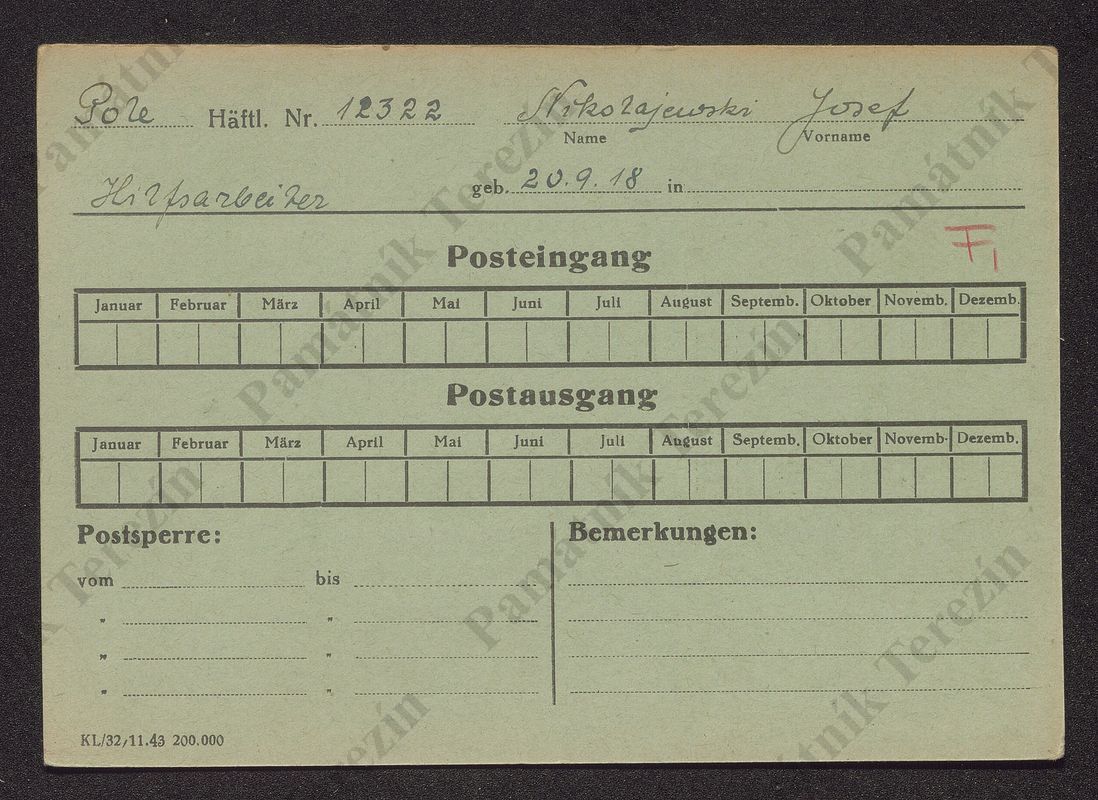 Pole Häftl. Nr. 12322 Nikolajewski Josef
Name Vorname
Hilfsarbeiter geb. 20.9.18 in
F1
Posteingang
Januar Februar März April Mai Juni Juli August Septemb. Oktober Novemb. Dezemb.
Postausgang
Januar Februar März April Mai Juni Juli August Septemb. Oktober Novemb. Dezemb.
Postsperre: Bemerkungen:
vom bis
" "
" "
" "
KL/32/11.43 200.000
Památník Terezín